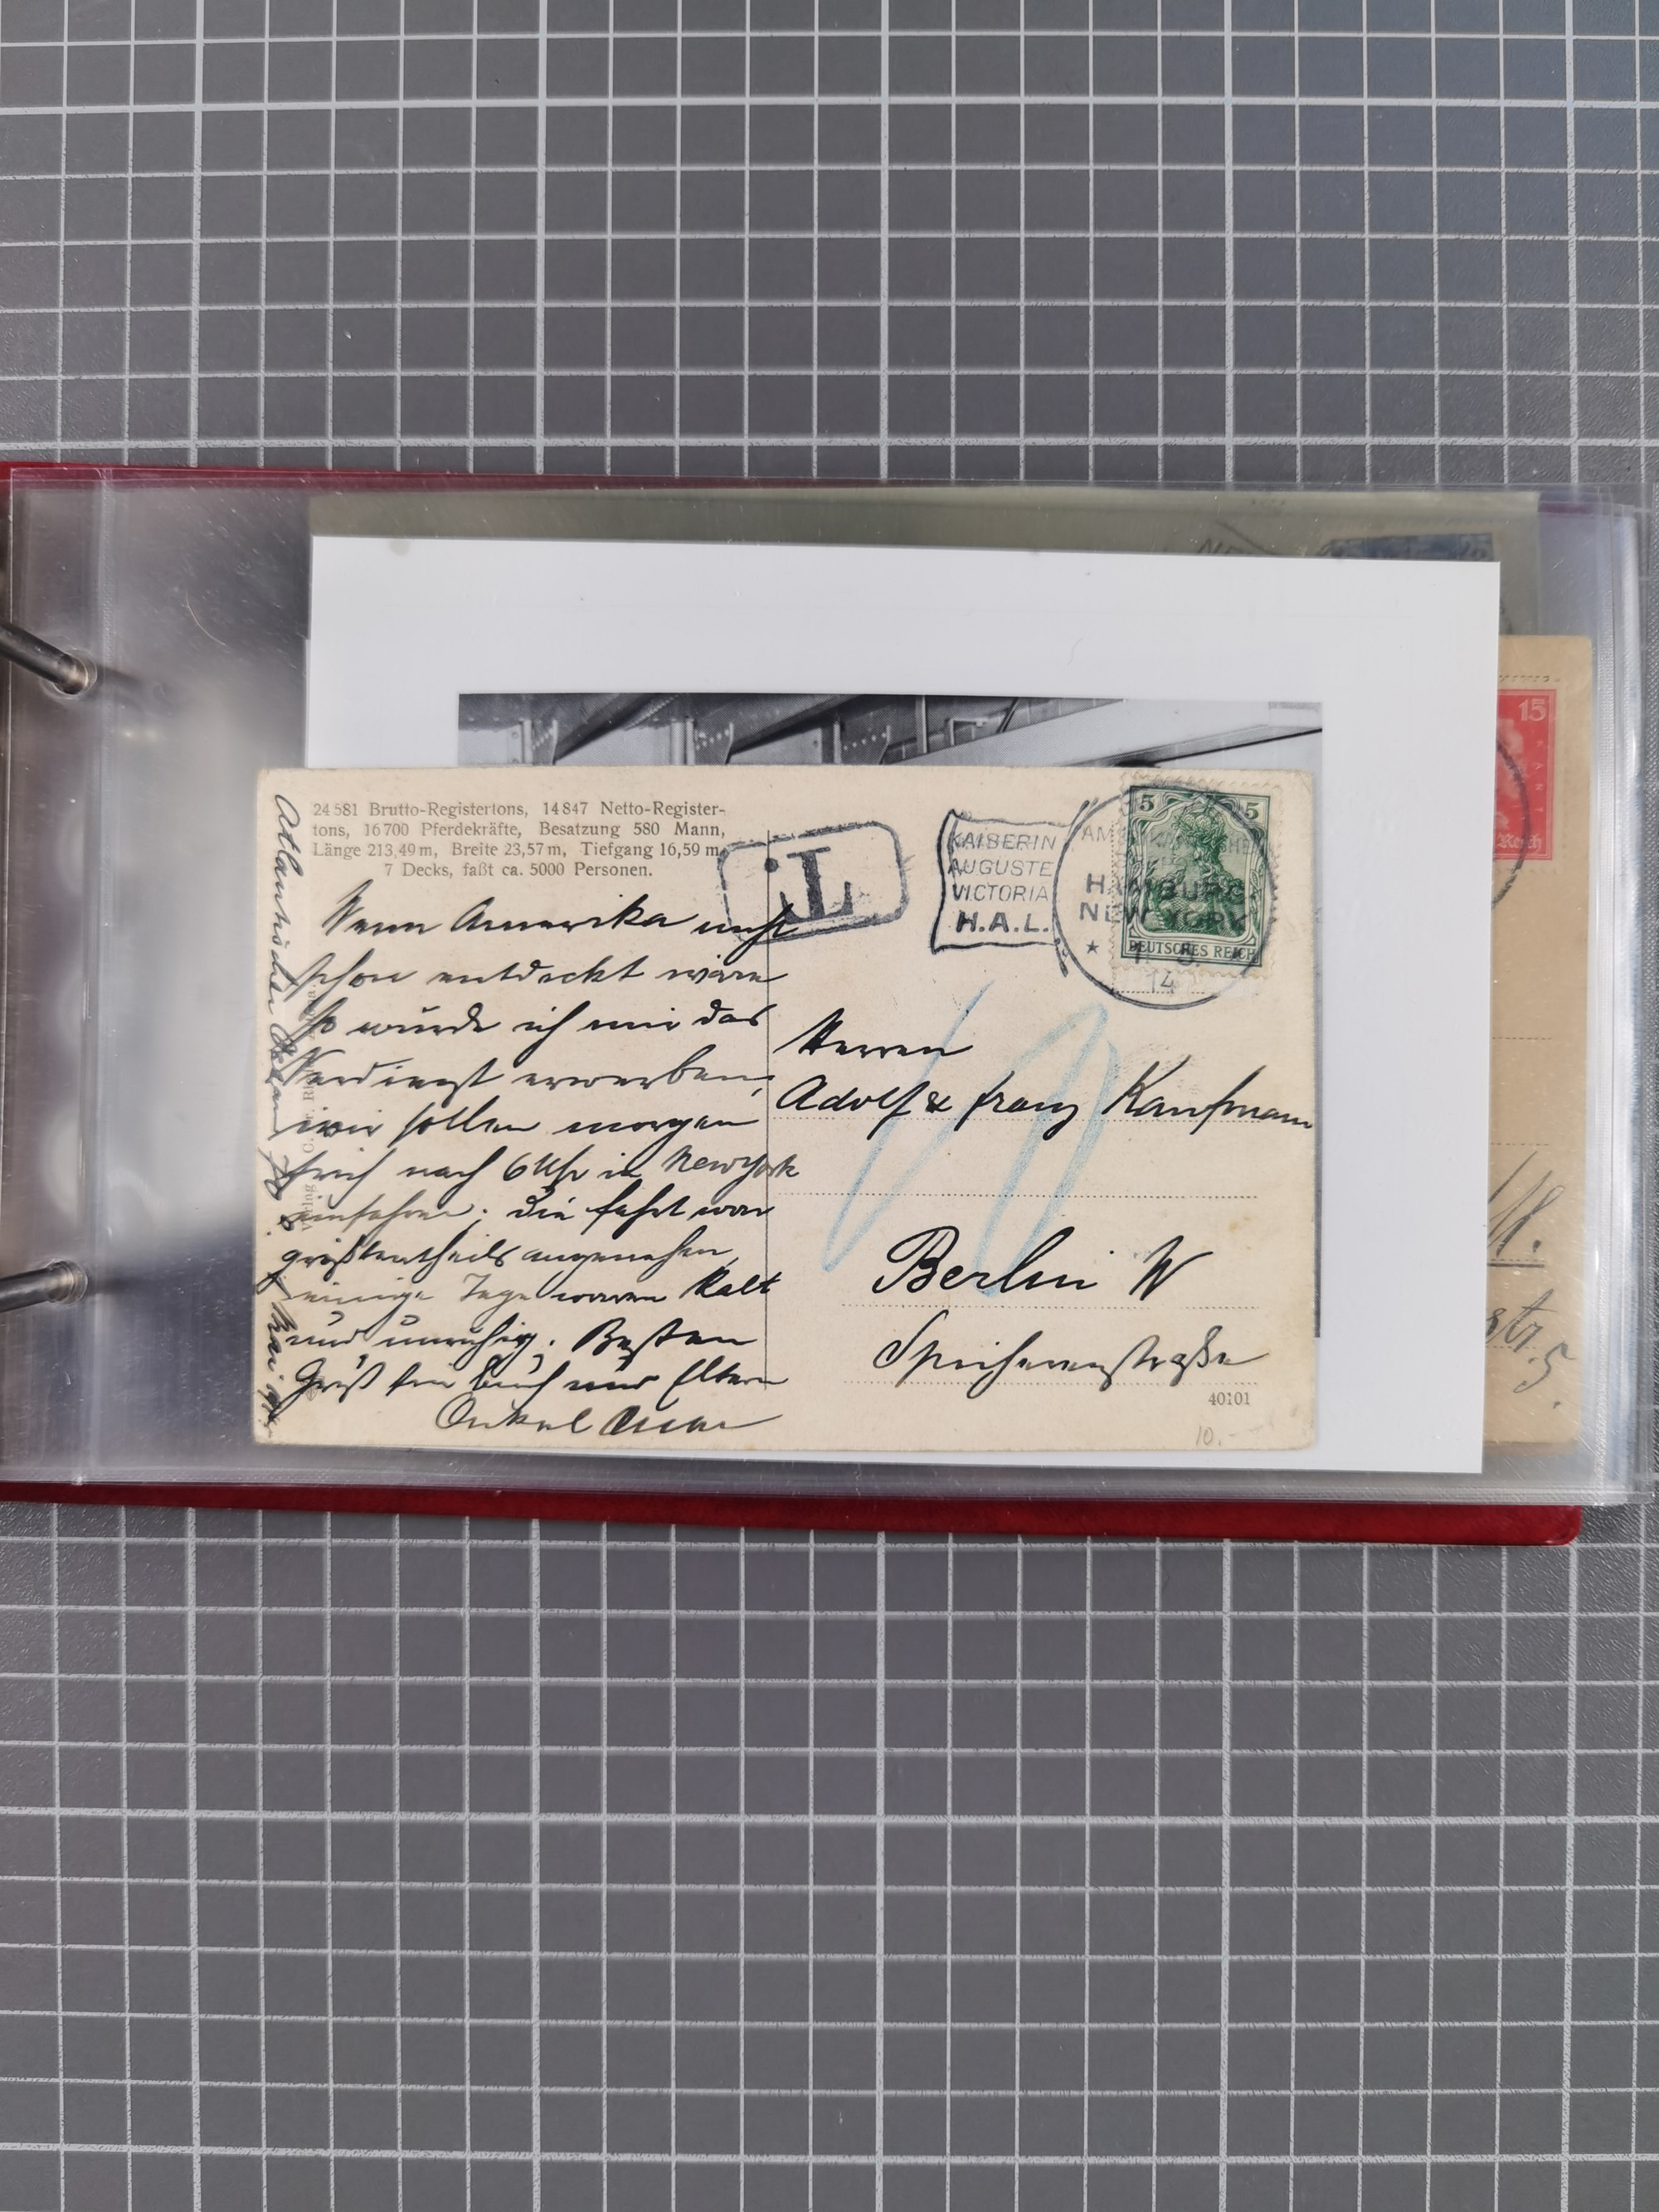 24 581 Brutto-Registertons, 14 847 Netto-Register-
tons, 16 700 Pferdekräfte, Besatzung 580 Mann,
Länge 213,49 m, Breite 23,57 m, Tiefgang 16,59 m,
7 Decks, faßt ca. 5000 Personen.
T
KAISERIN
AUGUSTE
VICTORIA
H.A.L.
HAMBURG
NEW YORK
14
5 5
DEUTSCHES REICH
Atlantischer
Wenn Amerika nicht
schon entdeckt wäre
so würde ich mir das
Verdienst erwerben,
wir sollen morgen
früh nach 6 Uhr in New York
einfahren; die Fahrt war
größtentheils angenehm,
einige Tage waren kalt
und unruhig. Besten
Gruß für Euch und Eltern
Onkel
Herren
Adolf & Franz Kaufmann
Berlin W
Speichernstraße
40101
10.-
15
Reich
str. 5.